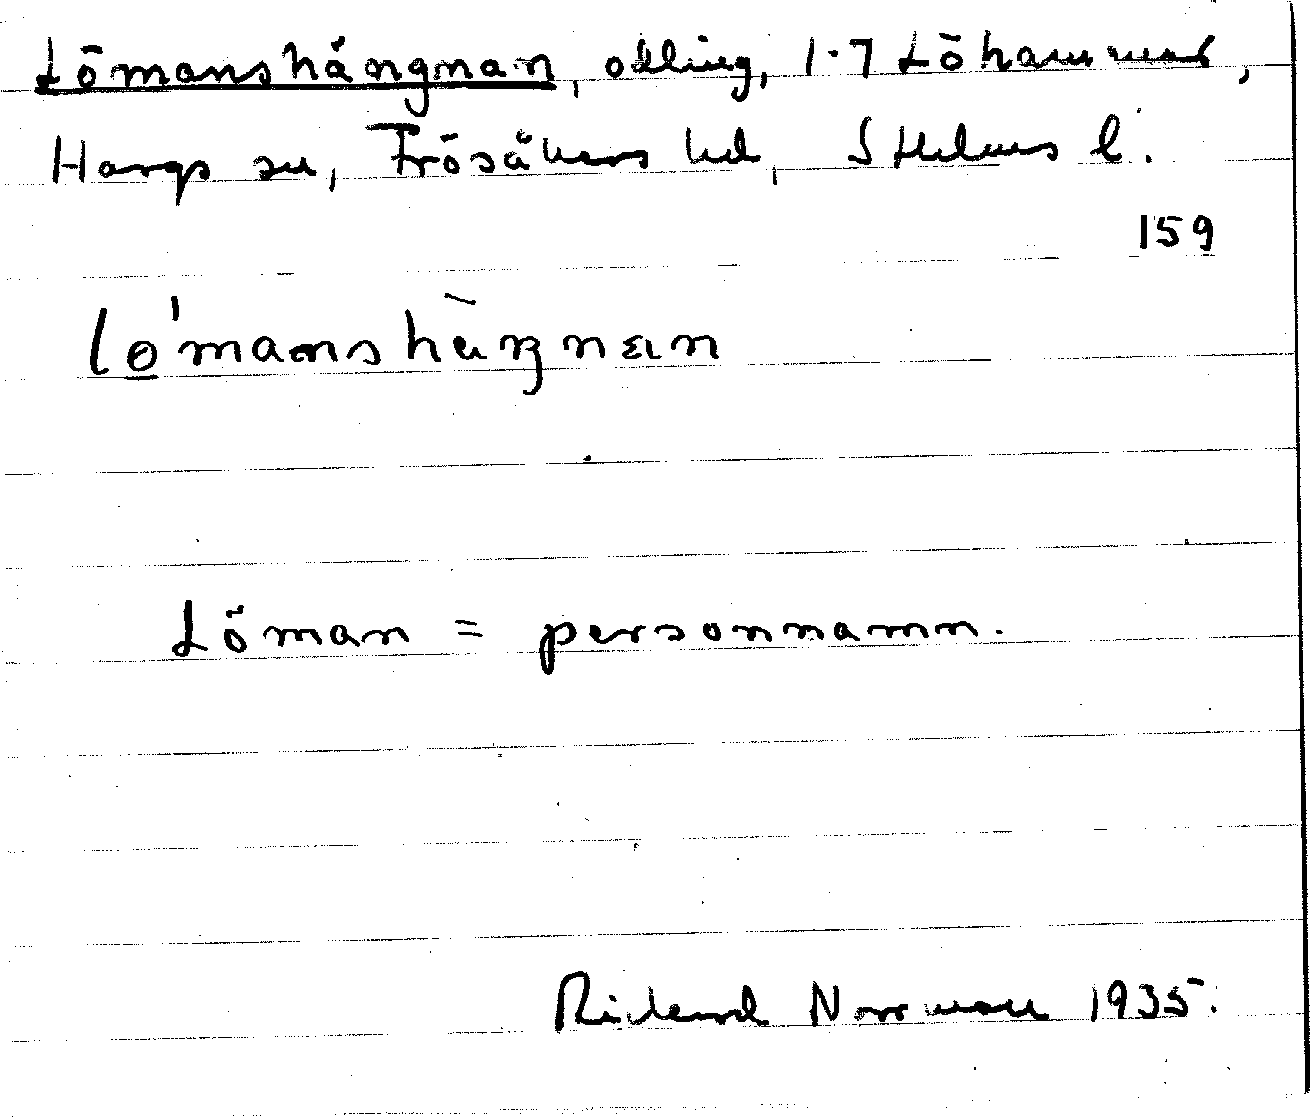 Lömanshängnan, odling, 1·7 Löhammar,
Hargs sn, Frösåkers hd, Sthlms l.
159
Löman = personnamn.
Rickard Norrman 1935.